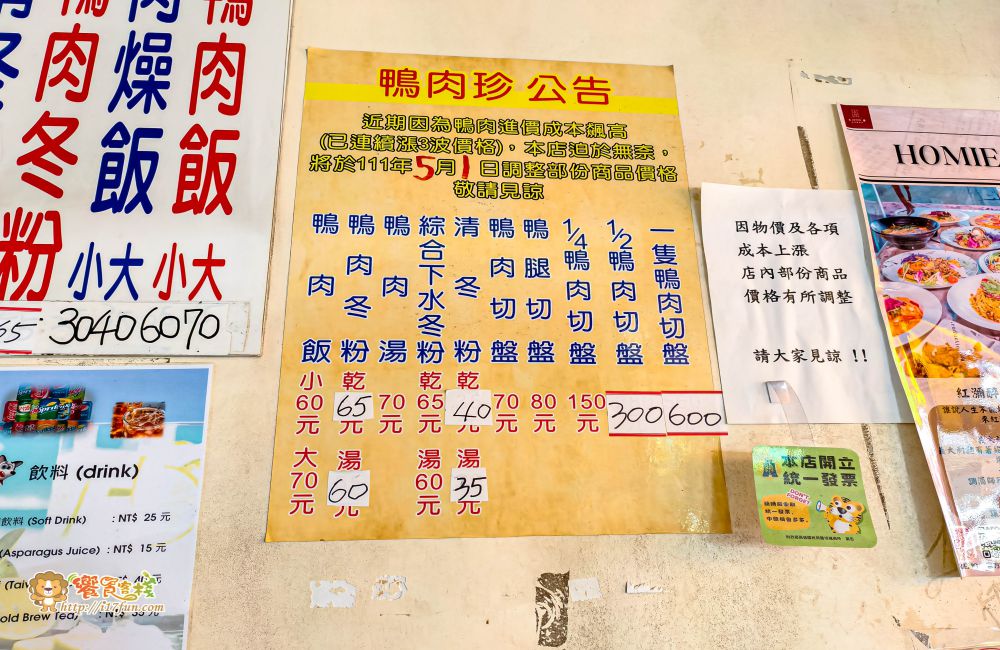 鴨肉冬粉
肉燥飯
小大
鴨肉飯
小大
65 30 40 60 70
鴨肉珍 公告
近期因為鴨肉進價成本飆高
(已連續漲3波價格)，本店迫於無奈，
將於111年5月1日調整部份商品價格
敬請見諒
鴨肉飯 小60元 大70元
鴨肉冬粉 乾65元 湯60元
鴨肉湯 70元
綜合下水冬粉 乾65元 湯60元
清冬粉 乾40元 湯35元
鴨肉切盤 70元
鴨腿切盤 80元
1/4鴨肉切盤 150元
1/2鴨肉切盤 300
一隻鴨肉切盤 600
因物價及各項
成本上漲
店內部份商品
價格有所調整
請大家見諒 !!
HOMIE
紅瀰醉
飲料 (drink)
飲料 (Soft Drink) : NT$ 25 元
(Asparagus Juice) : NT$ 15 元
本店開立
統一發票
DON'T FORGET
饗食客棧
http://t17fun.com/